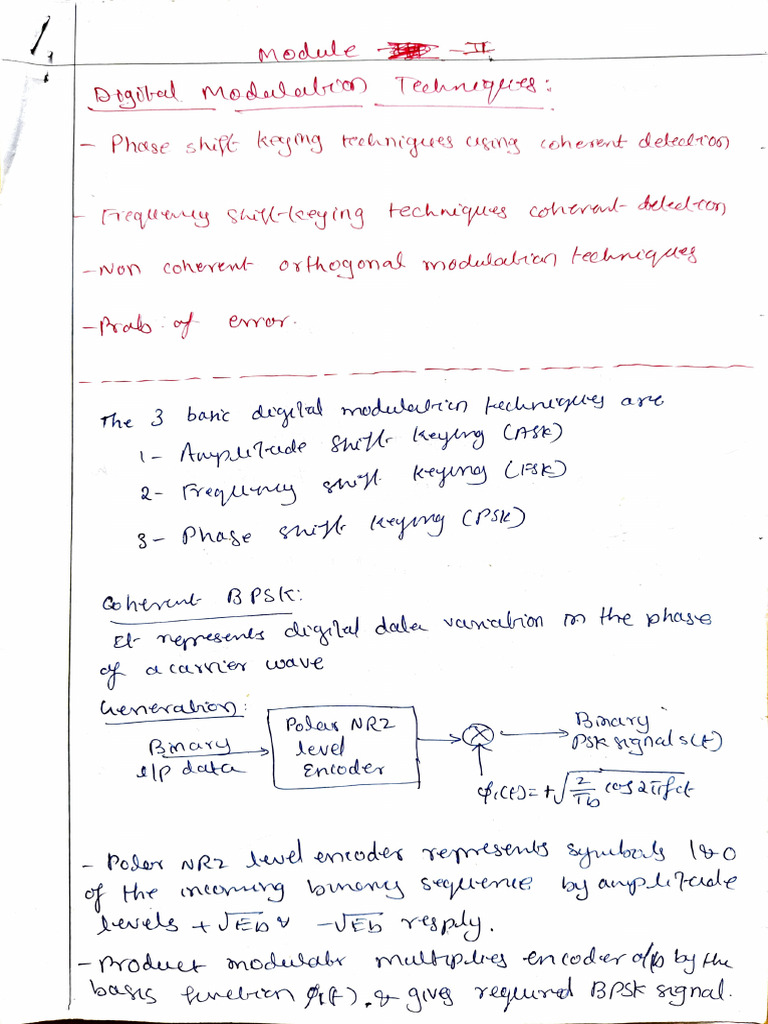 1.
Module - II
Digital Modulation Techniques:
- Phase shift keying techniques using coherent detection
- Frequency shift-keying techniques coherent detection
- Non coherent orthogonal modulation techniques
- Prob: of error.
The 3 basic digital modulation techniques are
1- Amplitude shift keying (ASK)
2- Frequency shift keying (FSK)
3- Phase shift keying (PSK)
Coherent BPSK:
It represents digital data variation in the phase
of a carrier wave
Generation:
Binary
i/p data
Polar NRZ
level
Encoder
Binary
PSK signal s(t)
φ₁(t) = +√2/Tb cos2πfct
- Polar NRZ level encoder represents symbols 1 & 0
of the incoming binary sequence by amplitude
levels +√Eb & -√Eb resply.
- Product modulatr multiplies encoder o/p by the
basis function φ₁(t), & gives required BPSK signal.